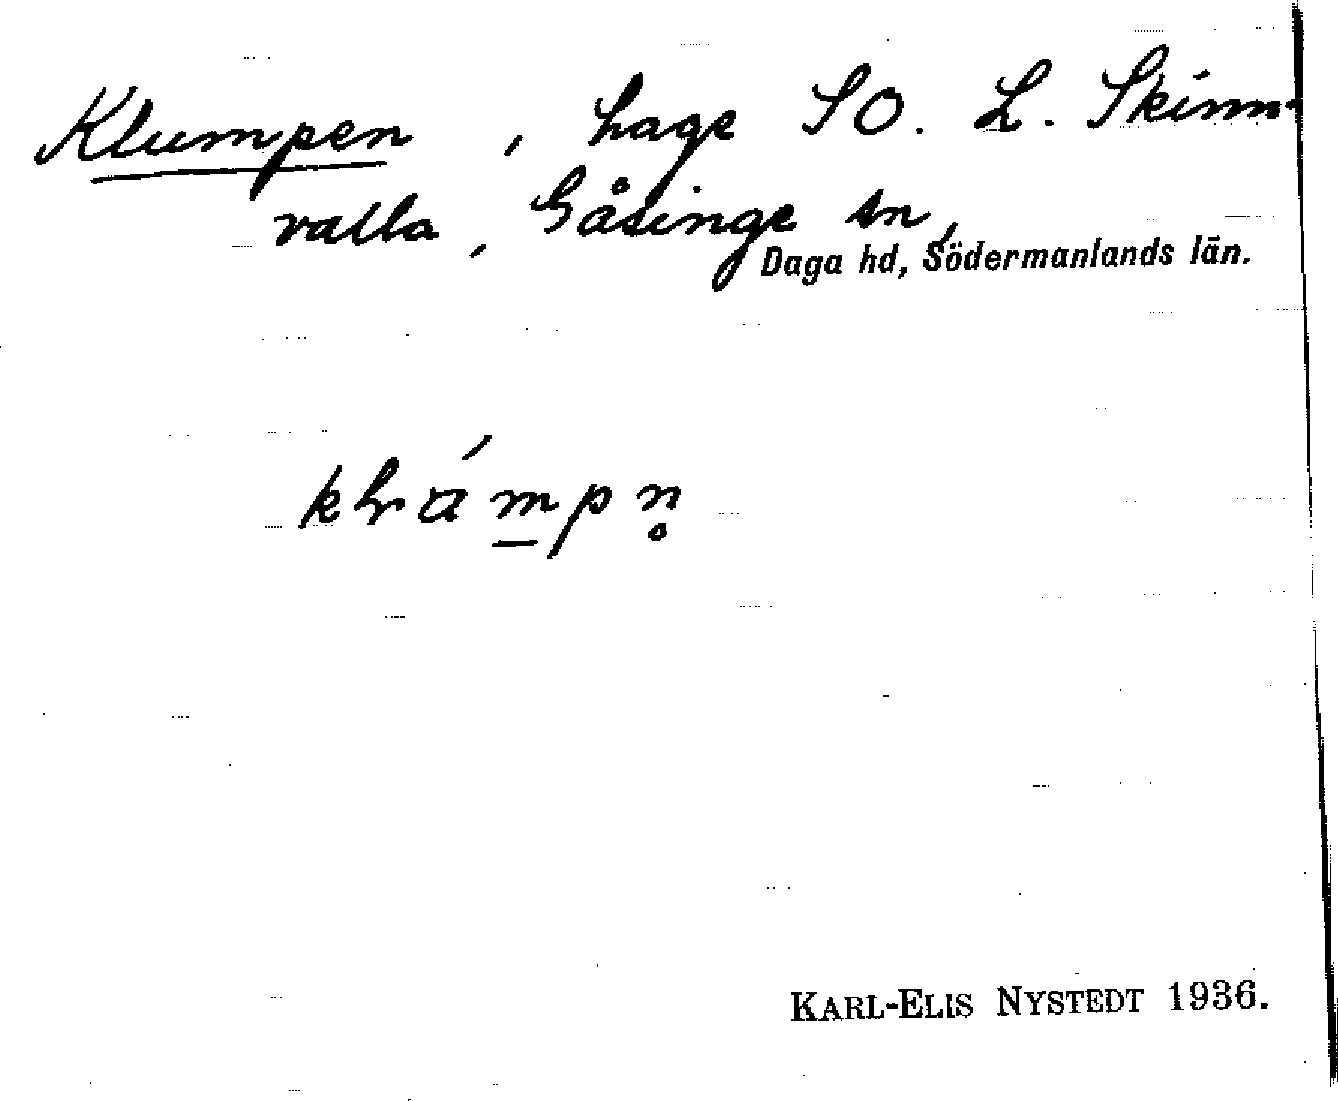 Klumpen, hage SO. L. Skinn-
valla, Gåsinge sn,
Daga hd, Södermanlands län.
KARL-ELIS NYSTEDT 1936.